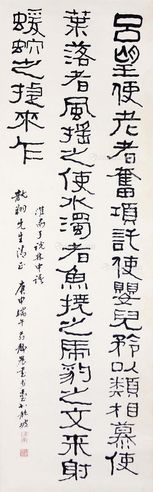 呂望使老者奮項託使嬰兒矜以類相慕使
葉落者風搖之使水濁者魚撓之虎豹之文來射
蝯之捷來乍
淮南子說林中語
翔先生清正 庚申端午前